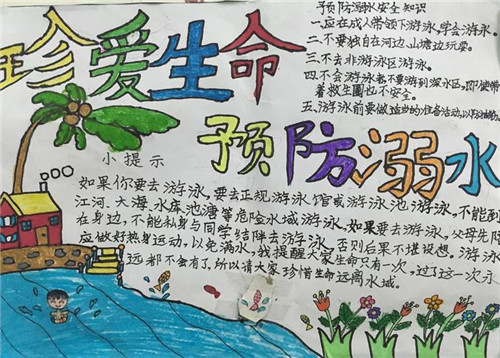 珍爱生命
预防溺水安全知识
一.应在成人带领下游泳,学会游泳。
二.不要独自在河边、山塘边玩耍。
三.不去非游泳区游泳。
四.不会游泳者不要游到深水区,即使带
着救生圈也不安全。
五.游泳前要做适当的准备活动,以防抽筋。
预防溺水
小提示
如果你要去游泳,要去正规游泳馆或游泳池游泳,不能到
江河、大海、水库、池塘等危险水域游泳,如果要去游泳,父母先陪
在身边,不能私身与同学结阵去游泳,否则后果不堪设想。游泳
应做好热身运动,以免溺水,我提醒大家生命只有一次,过了这一次永
远都不会有了,所以请大家珍惜生命远离水域。